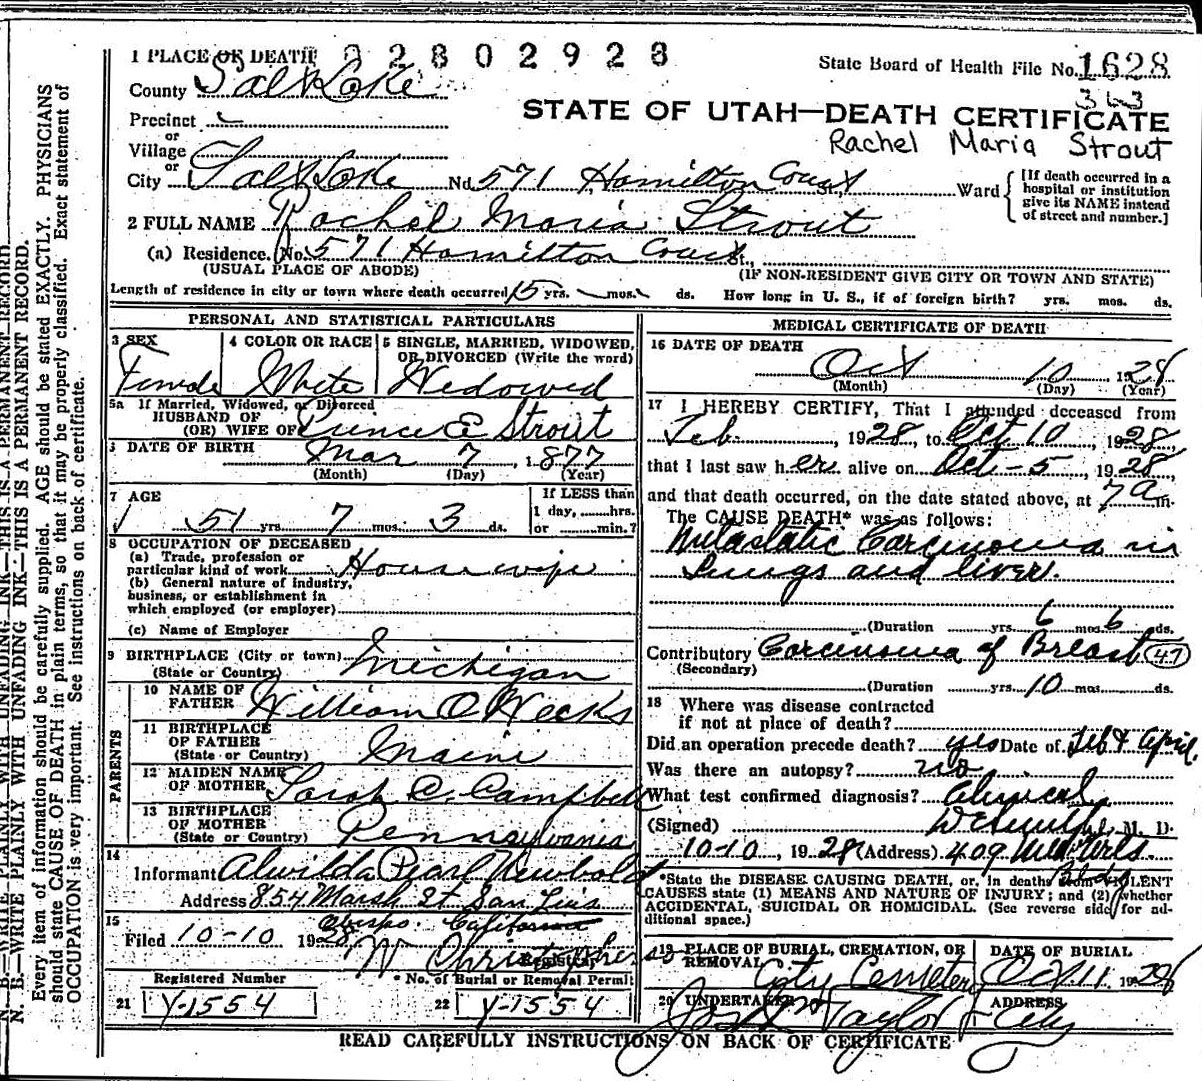 1 PLACE OF DEATH 8 2 8 0 2 9 2 8
State Board of Health File No. 1628
County Salt Lake
363
STATE OF UTAH—DEATH CERTIFICATE
Precinct
Rachel Maria Strout
or
Village
or
City Salt Lake No. 571 Hamilton Court Ward
[If death occurred in a hospital or institution give its NAME instead of street and number.]
2 FULL NAME Rachel Maria Strout
(a) Residence. No. 571 Hamilton Court St.,
(USUAL PLACE OF ABODE) (IF NON-RESIDENT GIVE CITY OR TOWN AND STATE)
Length of residence in city or town where death occurred 15 yrs. mos. ds. How long in U. S., if of foreign birth? yrs. mos. ds.
PERSONAL AND STATISTICAL PARTICULARS
3 SEX 4 COLOR OR RACE 5 SINGLE, MARRIED, WIDOWED, OR DIVORCED (Write the word)
Female White Widowed
5a If Married, Widowed, or Divorced
HUSBAND OF
(OR) WIFE OF Prince E Strout
6 DATE OF BIRTH Mar 7, 1877
(Month) (Day) (Year)
7 AGE If LESS than
51 yrs. 7 mos. 3 ds. 1 day, hrs.
or min.?
8 OCCUPATION OF DECEASED
(a) Trade, profession or
particular kind of work House wife
(b) General nature of industry,
business, or establishment in
which employed (or employer)
(c) Name of Employer
9 BIRTHPLACE (City or town) Michigan
(State or Country)
PARENTS
10 NAME OF
FATHER William O Weeks
11 BIRTHPLACE
OF FATHER Maine
(State or Country)
12 MAIDEN NAME
OF MOTHER Sarah C. Campbell
13 BIRTHPLACE
OF MOTHER Pennsylvania
(State or Country)
14
Informant Alwilda Pearl Newbold
Address 854 Marsh St San Luis
Obispo. California
15
Filed 10-10 1928 W Christopher
Registrar
Registered Number * No. of Burial or Removal Permit
21 Y-1554 22 Y-1554
MEDICAL CERTIFICATE OF DEATH
16 DATE OF DEATH
Oct 10 1928
(Month) (Day) (Year)
17 I HEREBY CERTIFY, That I attended deceased from
Feb., 1928, to Oct 10, 1928
that I last saw her alive on Oct - 5, 1928
and that death occurred, on the date stated above, at 7 a m.
The CAUSE DEATH* was as follows:
Metastatic Carcinoma in
Lungs and liver.
(Duration yrs. 6 mos. 6 ds.
Contributory Carcinoma of Breast 47
(Secondary)
(Duration yrs. 10 mos. ds.
18 Where was disease contracted
if not at place of death?
Did an operation precede death? yes Date of Feb & April.
Was there an autopsy? no
What test confirmed diagnosis? Clinical
(Signed) M. D.
10-10, 1928 (Address) 409
Bldg
*State the DISEASE CAUSING DEATH, or, in deaths from VIOLENT
CAUSES state (1) MEANS AND NATURE OF INJURY; and (2) whether
ACCIDENTAL, SUICIDAL OR HOMICIDAL. (See reverse side for ad-
ditional space.)
19 PLACE OF BURIAL, CREMATION, OR REMOVAL DATE OF BURIAL
City Cemetery Oct 11 1928
20 UNDERTAKER ADDRESS
Taylor City
READ CAREFULLY INSTRUCTIONS ON BACK OF CERTIFICATE
N. B.—WRITE PLAINLY WITH UNFADING INK—THIS IS A PERMANENT RECORD.
N. B.—WRITE PLAINLY WITH UNFADING INK—THIS IS A PERMANENT RECORD.
Every item of information should be carefully supplied. AGE should be stated EXACTLY. PHYSICIANS
should state CAUSE OF DEATH in plain terms, so that it may be properly classified. Exact statement of
OCCUPATION is very important. See instructions on back of certificate.